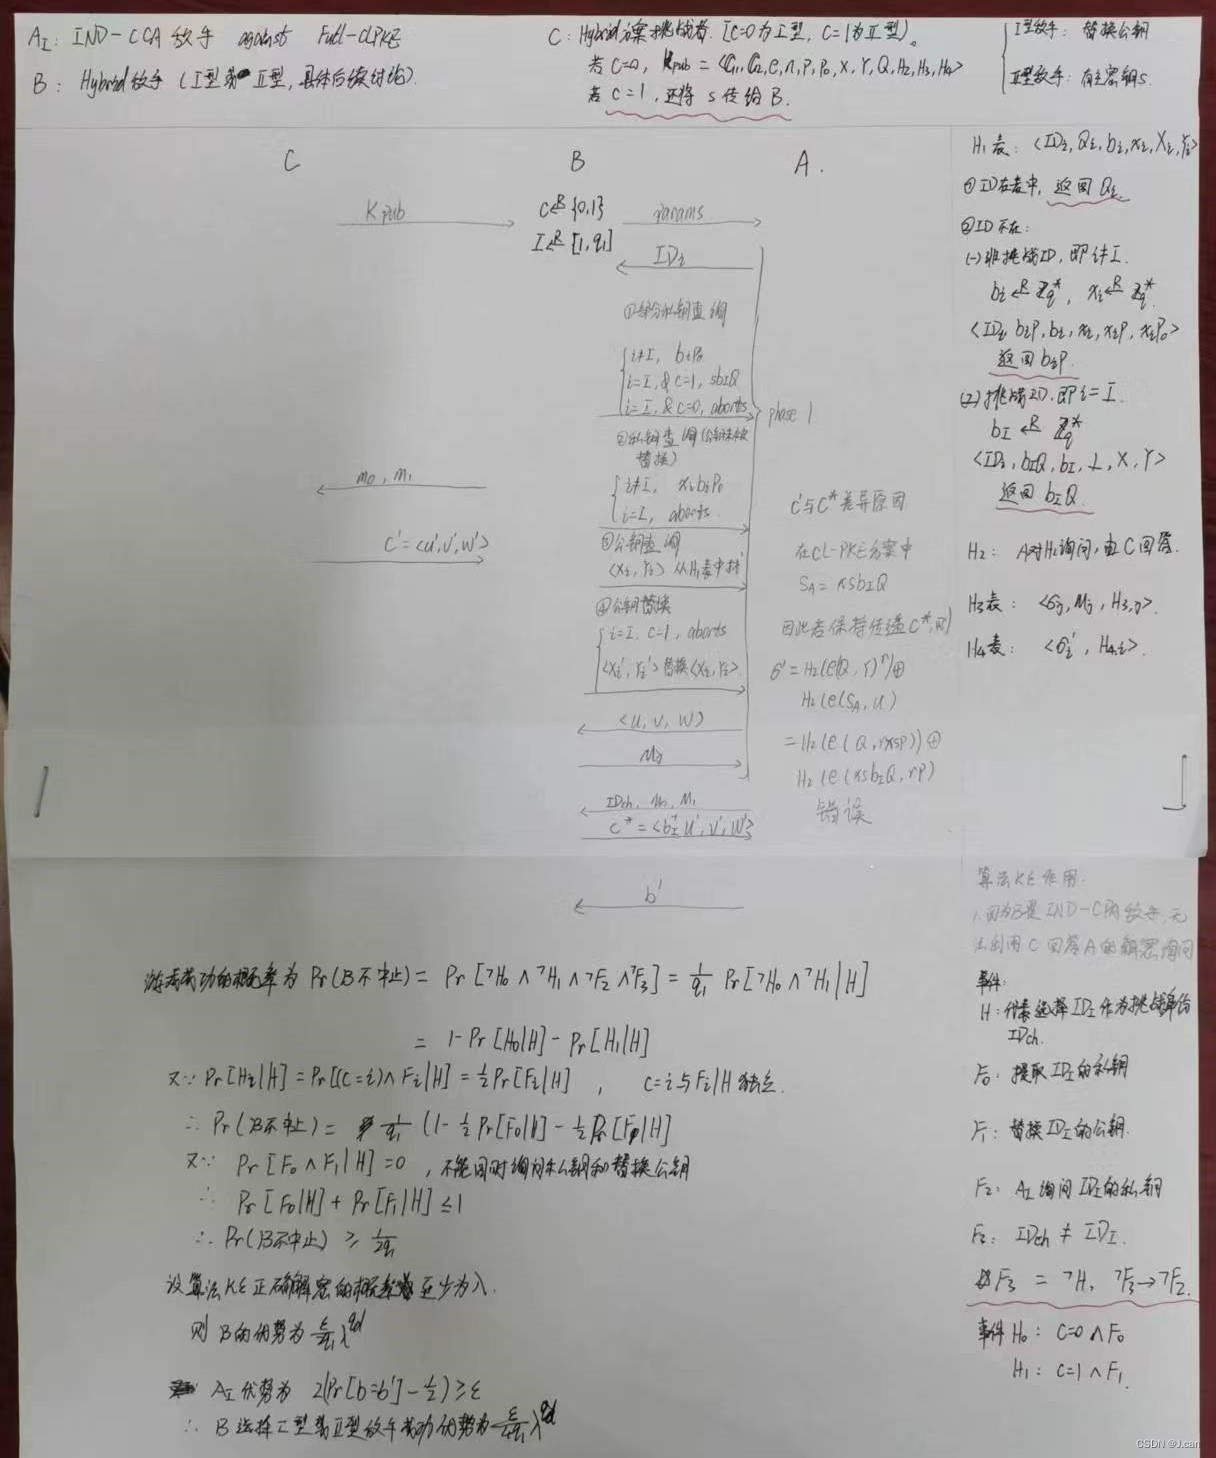 A_I: IND-CCA 敌手 against Full-CLPKE
B: Hybrid敌手 (I型或II型, 具体后续讨论).
C: Hybrid方案挑战者. [C=0为I型, C=1为II型).
若C=0, Kpub = <G1, G2, e, n, P, P0, X, Y, Q, H2, H3, H4>
若C=1, 还将 s 传给 B.
I型敌手: 替换公钥
II型敌手: 有主密钥s.
C B A.
Kpub
C ←R {0,1}
I ←R [1, q1]
params
IDi
①部分私钥查询
i≠I, biP0
i=I, & C=1, sbIQ
i=I, & C=0, aborts
②私钥查询(公钥未被
替换)
i≠I, xibiP0
i=I, aborts.
③公钥查询
<Xi, Yi> 从H1表中找
④公钥替换
i=I, C=1, aborts
<Xi', Yi'> 替换 <Xi, Yi>.
phase 1
m0, m1
C' = <U', V', W'>
<U, V, W>
Mj
IDch, m0, M1
C* = <bI⁻¹U', V', W'>
b'
C'与C*差异原因
在CL-PKE方案中
SA = xsbIQ
因此若保持传递C*, 则
σ' = H2(e(Q, Y)^r)⊕
H2(e(SA, U)
= H2(e(Q, rxsP))⊕
H2(e(xsbIQ, rP)
错误
H1表: <IDi, Qi, bi, xi, Xi, Yi>
①ID在表中, 返回Qi.
②ID不在:
(一)非挑战ID, 即i≠I.
bi ←R Zq*, xi ←R Zq*.
<IDi, biP, bi, xi, xiP, xiP0>
返回biP.
(2)挑战ID, 即i=I.
bI ←R Zq*
<IDi, bIQ, bI, ⊥, X, Y>
返回bIQ.
H2: A对H2询问, 由C回答.
H3表: <σj, Mj, H3,j>.
H4表: <σi', H4,i>.
算法KE作用.
因为B是IND-CPA敌手, 无
法利用C回答A的解密询问
事件:
H: 代表选择IDI作为挑战阶段的
IDch.
F0: 提取IDI的私钥
F1: 替换IDI的公钥.
F2: AI询问IDI的私钥
F2: IDch ≠ IDI.
F3 = ¬H, ¬F3→¬F2.
事件H0: C=0∧F0
H1: C=1∧F1.
游戏成功的概率为 Pr(B不中止) = Pr[¬H0∧¬H1∧¬F2∧¬F3] = 1/q1 Pr[¬H0∧¬H1|H]
= 1-Pr[H0|H]-Pr[H1|H]
又∵ Pr[Hi|H] = Pr[(C=i)∧Fi|H] = 1/2 Pr[Fi|H], C=i与Fi|H独立.
∴ Pr(B不中止) = 1/q1 (1-1/2 Pr[F0|H]-1/2 Pr[F1|H]
又∵ Pr[F0∧F1|H]=0, 不能同时询问私钥和替换公钥
∴ Pr[F0|H]+Pr[F1|H]≤1
∴ Pr(B不中止) ≥ 1/2q1
设算法KE正确解密的概率至少为λ.
则 B的优势为 ε/2q1 λ^qd
AI优势为 2(Pr[b=b']-1/2)≥ε
∴ B选择I型或II型敌手成功优势为 ε/4q1 λ^qd
CSDN @J.can